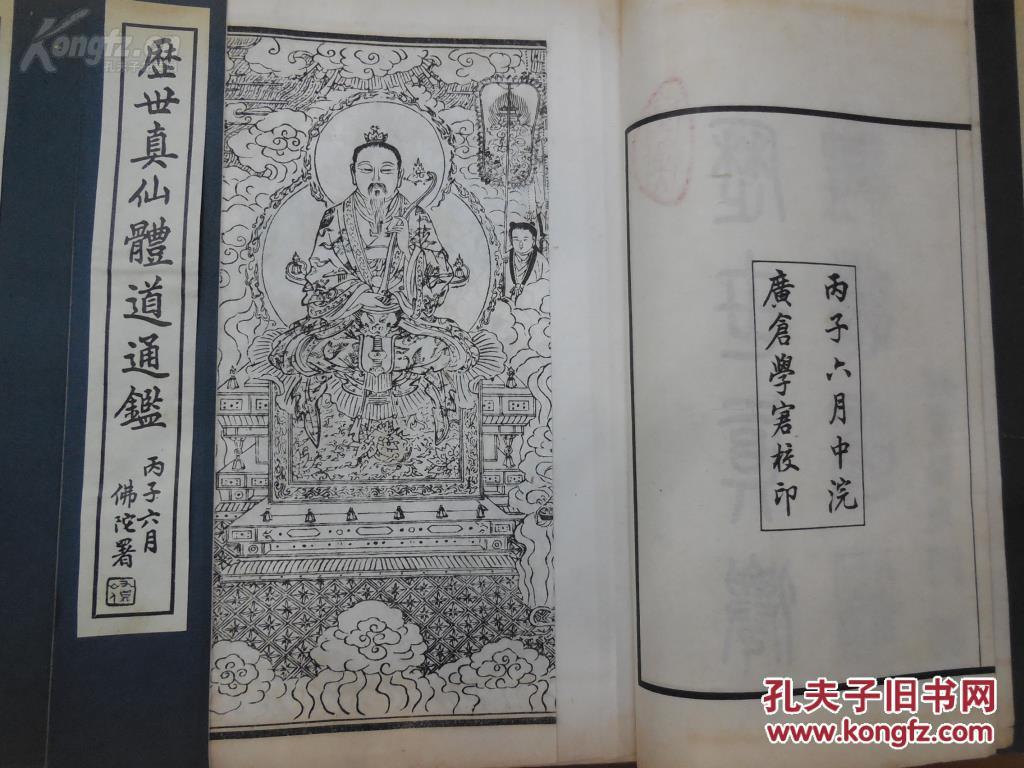 歷世真仙體道通鑑
丙子六月
佛陀署
丙子六月中浣
廣倉學宭校印
Kongfz.cn
孔夫子旧书网
www.kongfz.com